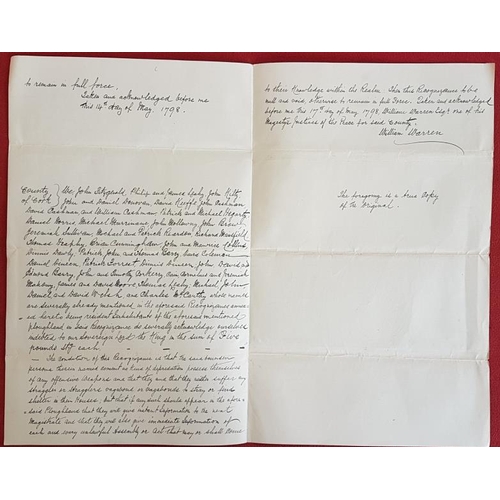 to remain in full force.
Taken and acknowledged before me
this 14th day of May 1798.
County } We, John Fitzgerald, Philip and James Leahy, John Kelly
of Cork } John and Daniel Donovan, David Keeffe, John Cashman
David Cashman and William Cashman, Patrick and Michael Hegarty
Daniel Morris, Michael Hurrinane, John Holloway, John Brown
Jeremiah Sullivan, Michael and Patrick Reardon, Richard
Thomas Heaphy, Owen Cunningham, John and Maurice Collins
Dinnis Dawly, Patrick John and Thomas Barry, Coleman
David Patrick Forrest, Dinnis John David and
Edmond Barry, John and Timothy Corkery, Cornelius and Jeremiah
Mahony, James and David Moore, Thomas Leahy, Michael, John
Daniel and David Welsh and Charles McCarthy whose names
are severally already mentioned in the aforesaid Recognizance annex
ed hereto being resident Inhabitants of the aforesaid mentioned
ploughland in said Recognizance do severally acknowledge ourselves
indebted to our Sovereign Lord the King in the sum of Five
pounds Stg each.
— The condition of this Recognizance is that the said
persons therein named cannot in time of possess themselves
of any offensive Weapons and that they and that they neither suffer any
stragglers or strugglers vagabond or vagabonds to stay or find
shelter in their Houses; but that if any such should appear in the afore
said Ploughland that they will give instant Information to the next
Magistrate and that they will also give immediate Information of
each and every unlawful Assembly or Act that may or shall come
to their Knowledge within the Realm. Then this Recognizance to be
null and void, otherwise to remain in full Force. Taken and acknowledged
before me this 17th day of May 1798, William Warren Esqr. one of his
Majestys Justices of the Peace for said County.
William Warren
The foregoing is a true Copy
of the Original.